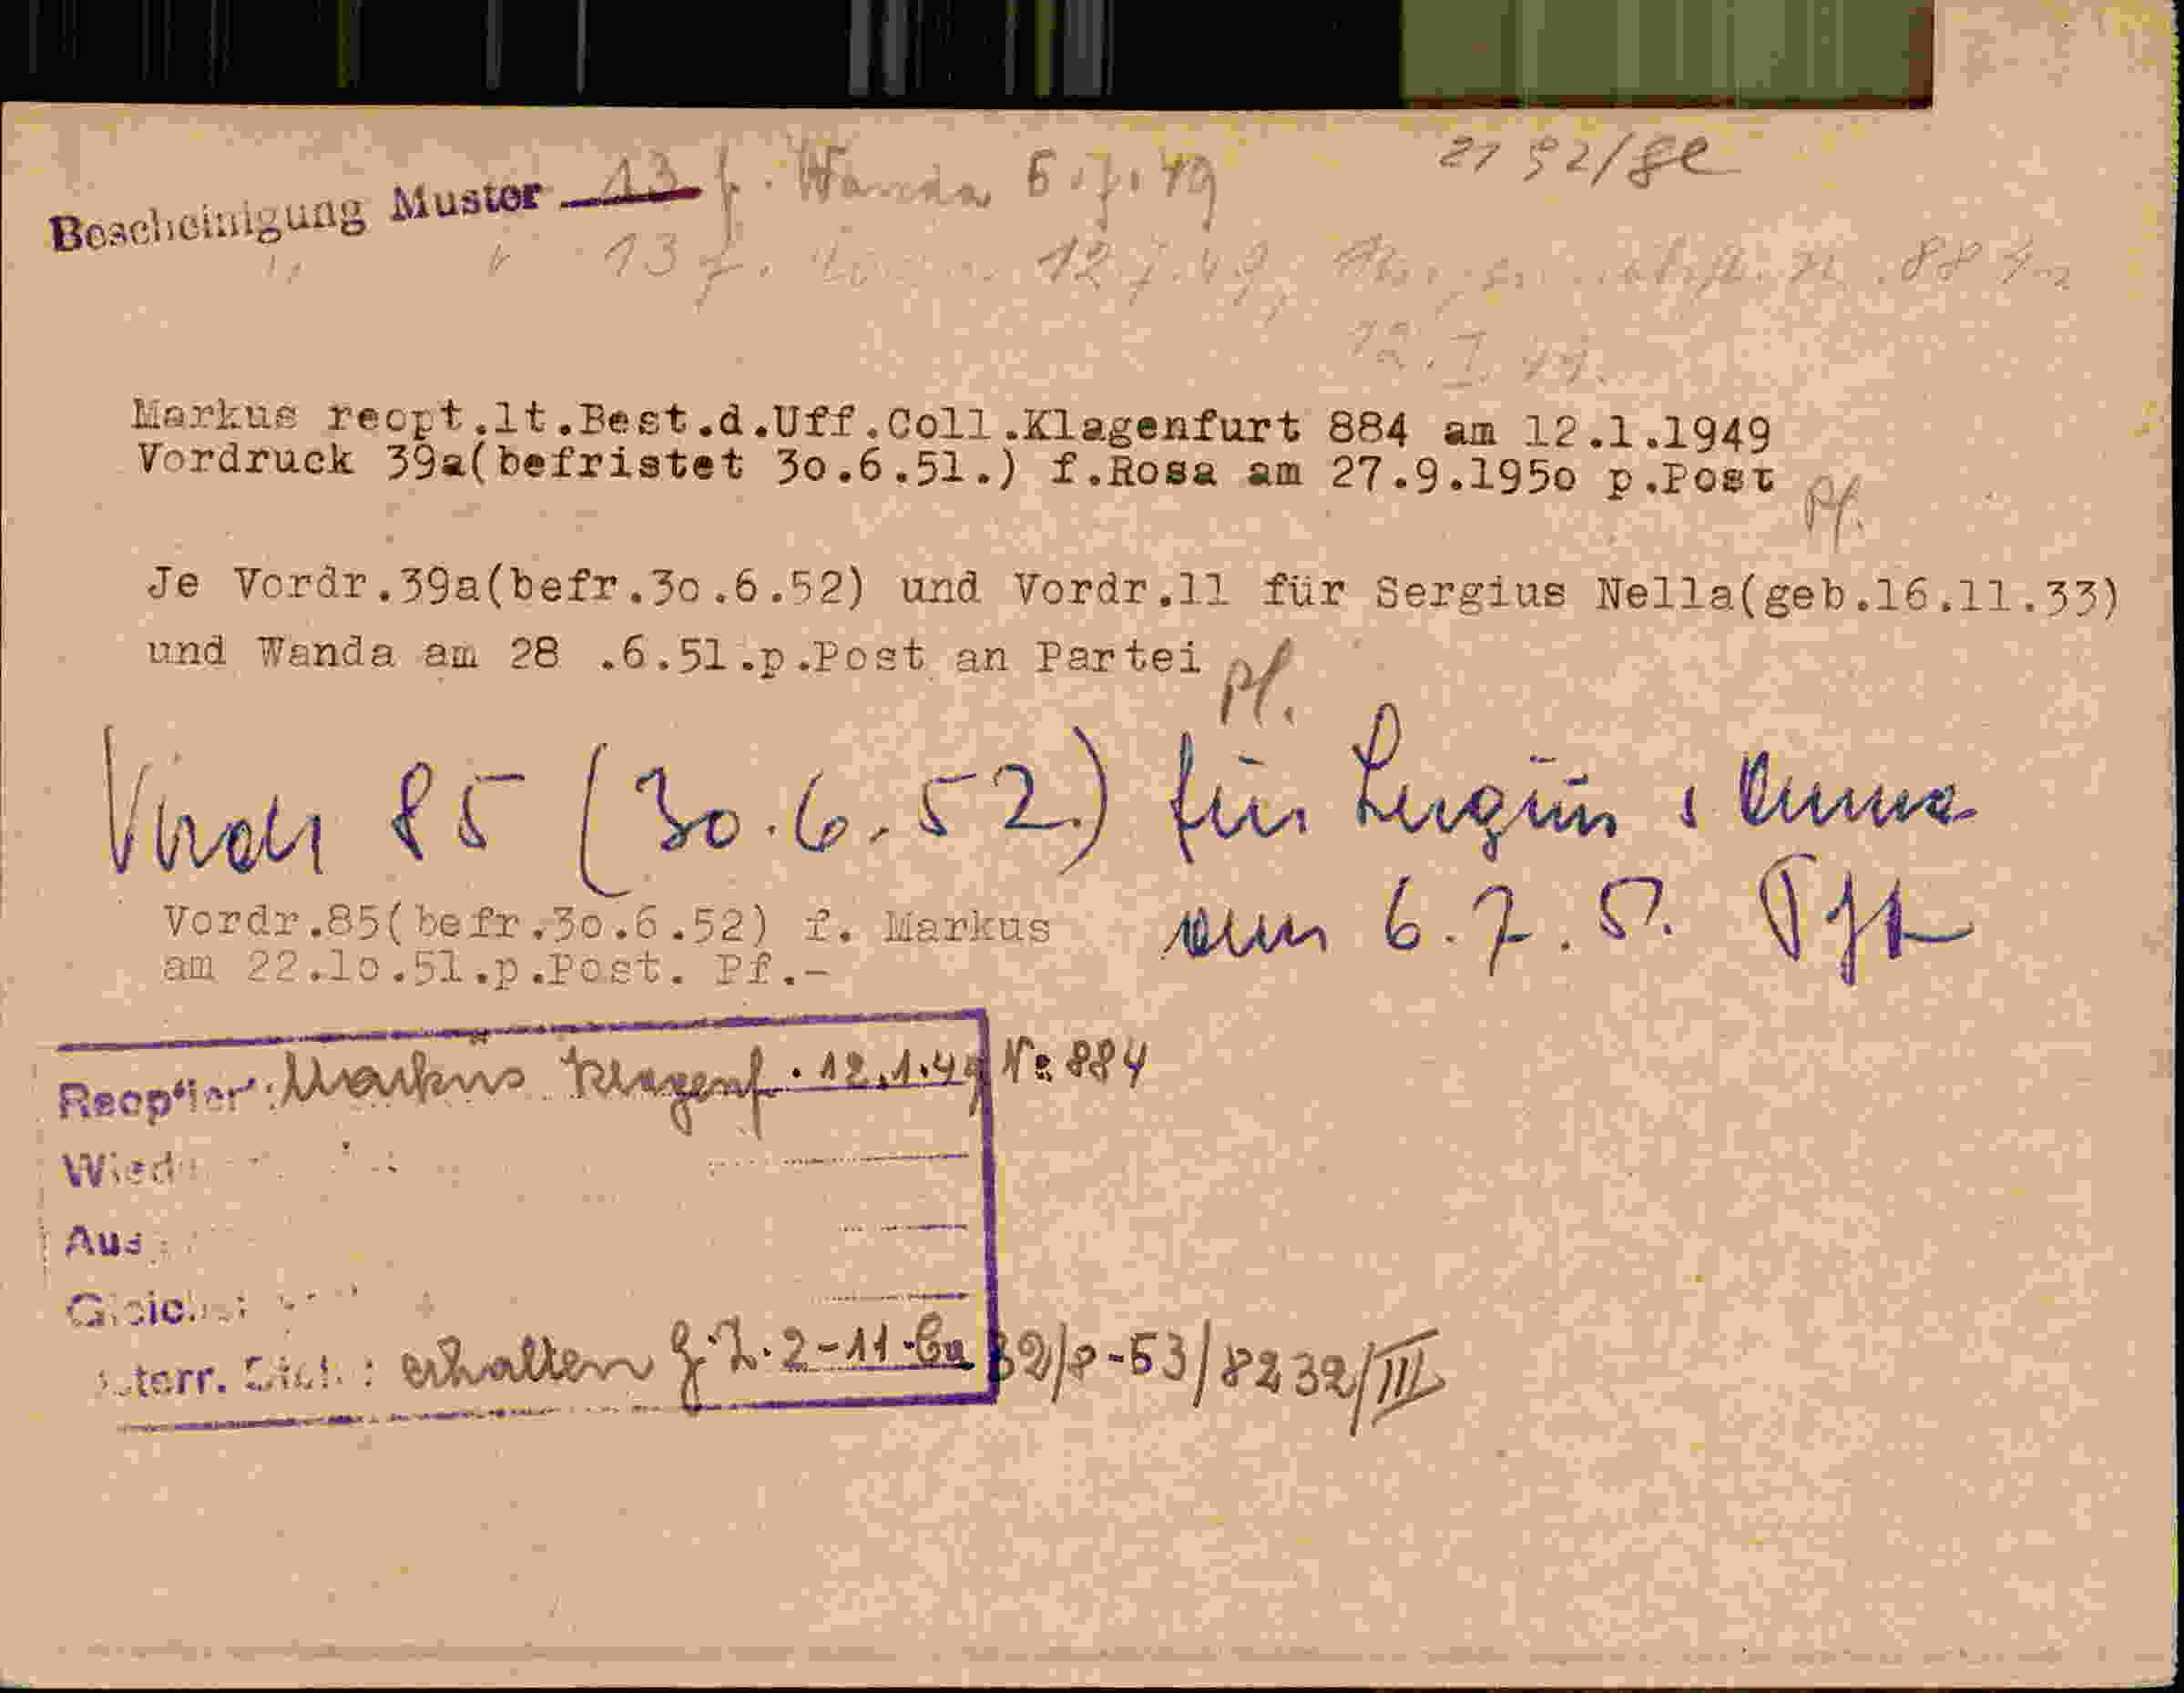 2192/ge
Bescheinigung Muster 13 f. Wanda 5.7.49
" " 13 f. 12.7.49, 884
12.I.49.
Markus reopt.lt.Best.d.Uff.Coll.Klagenfurt 884 am 12.1.1949
Vordruck 39a(befristet 3o.6.51.) f.Rosa am 27.9.195o p.Post Pf.
Je Vordr.39a(befr.3o.6.52) und Vordr.11 für Sergius Nella(geb.16.11.33)
und Wanda am 28 .6.51.p.Post an Partei Pf.
85 (30.6.52.) für
6.7.5
Vordr.85(befr.3o.6.52) f. Markus
am 22.1o.51.p.Post. Pf.-
Reoptier: Markus Klagenf. 12.1.49 No 884
Wied
Aus
Gleich
terr. : erhalten g.Z. 2-11- 32/8-53/8232/III